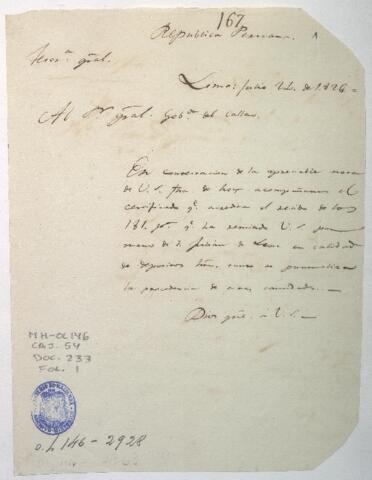 167
Republica Peruana
Tesor.ª gral.
Lima: Julio 22. de 1826 =
Al S.r gral. Gob.or del Callao.
En consecucion de la apreciable nota
de V.S. fha. de hoy acompañamos el
certificado q.e acredita el recibo de los
181. p.s q.e ha remitido V.S. por
mano de D. Julian de en calidad
de deposito
la procedencia de esas cantidades. —
Dios gũe. á V.S. —
MH-OL146
CAJ. 54
DOC. 233
FOL. 1
O.L 146 - 2928